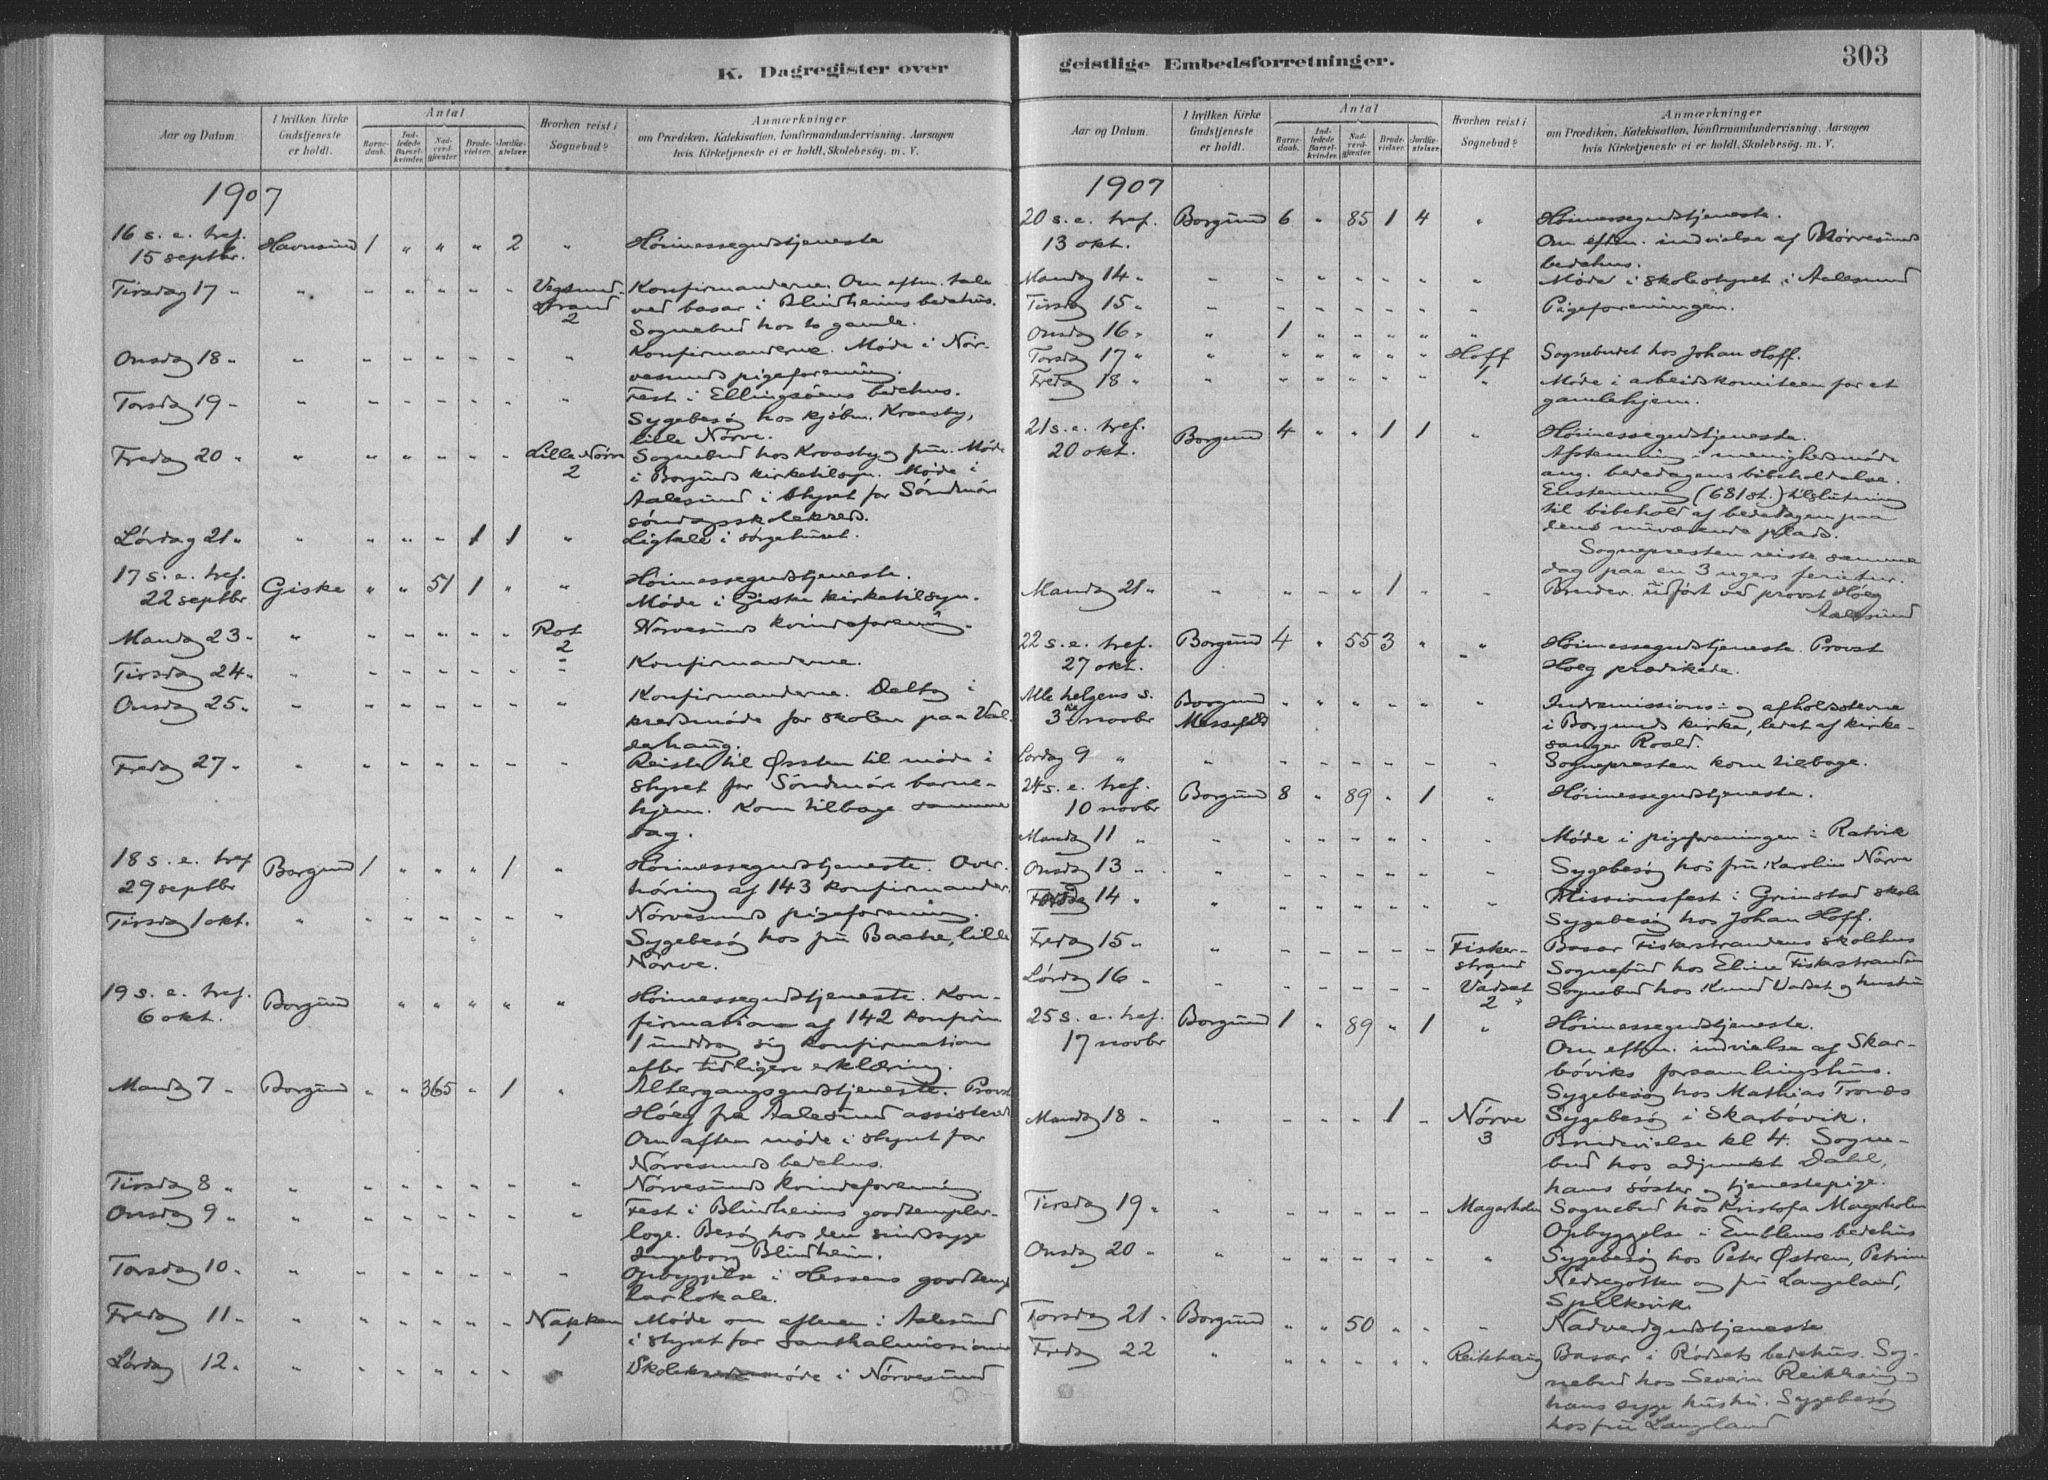 303
K. Dagregister over geistlige Embedsforretninger.
Aar og Datum.
I hvilken Kirke Gudstjeneste er holdt.
Antal
Barnedaab.
Indledede Barselkvinder.
Nadverdgjæster
Brudevielser.
Jordfæstelser.
Hvorhen reist i Sognebud?
Anmærkninger
om Prædiken, Katekisation, Konfirmandundervisning, Aarsagen
hvis Kirketjeneste ei er holdt, Skolebesøg. m. V.
1907
16 s. e. tref. 15 septbr. Havnsund 1 " " " 2 " Höimessegudstjeneste
Tirsdag 17 " " " " " " " Vegsund- Konfirmanderne. Om eftm. tale
strand ved basar i Blindheims bedehus.
2 Sognebud hos to gamle.
Onsdag 18 " " " " " " " " Konfirmanderne. Møde i Nör-
vesunds pigeforening.
Torsdag 19 " " " " " " " " Fest i Ellingsöens bedehus.
Sygebesög hos kjöbm. Kroesby,
lille Nörve.
Fredag 20 " " " " " " " Lille Nörve Sognebud hos Kroesby og frue. Møde
2 i Borgunds kirketilsyn. Møde i
Aalesund i styret for Söndmör
söndagsskolekreds.
Lördag 21 " " " " " 1 1 " Ligtale i sörgehuset.
17 s. e. tref. Höimessegudstjeneste.
22 septbr Giske " " 51 1 " " Møde i Giske kirketilsyn.
Mandag 23 " " " " " " " Rot Nörvesunds kvindeforening.
2
Tirsdag 24 " " " " " " " " Konfirmanderne.
Onsdag 25 " " " " " " " " Konfirmanderne. Deltog i
kredsmöde for skolen paa Val-
derhaug.
Fredag 27 " " " " " " " " Reiste til Ørsten til møde i
styret for Söndmöre barne-
hjem. Kom tilbage samme
dag.
18 s. e. tref Borgund 1 " " " 1 " Höimessegudstjeneste. Over-
29 septbr höring af 143 konfirmander.
Tirsdag 1 okt. " " " " " " " Nörvesunds pigeforening.
Sygebesög hos fru Bache, lille
Nörve.
19 s. e. tref. Borgund " " " " " Höimessegudstjeneste. Kon-
6 okt. firmation af 142 konfirm
1 unddrog sig konfirmation
efter tidligere erklæring.
Mandag 7 " Borgund " " 365 " 1 " Altergangsgudstjeneste. Provst
Höeg fra Aalesund assisterede
Om aften møde i styret for
Nörvesunds bedehus.
Tirsdag 8 " " " " " " " " Nörvesunds kvindeforening
Onsdag 9 " " " " " " " " Fest i Blindheims goodtemplar-
loge. Besög hos den sindssyge
Ingeborg Blindheim.
Torsdag 10 " " " " " " " " Opbyggelse i Hessens goodtemp
larlokale.
Fredag 11 " " " " " " " Nakken Møde om aftenen i Aalesund
1 i styret for Santhalmissionen
Lördag 12 " " " " " " " " Skolekredsmøde i Nörvesund
Aar og Datum.
I hvilken Kirke Gudstjeneste er holdt.
Antal
Barnedaab.
Indledede Barselkvinder.
Nadverdgjæster
Brudevielser
Jordfæstelser.
Hvorhen reist i Sognebud?
Anmærkninger
om Prædiken, Katekisation, Konfirmandundervisning, Aarsagen
hvis Kirketjeneste ei er holdt, Skolebesög. m. V.
1907
20 s. e. tref. Borgund 6 " 85 1 4 " Höimessegudstjeneste.
13 okt. Om eftm. indvielse af Nörvesunds
bedehus.
Mandag 14 " " " " " " " " Møde i skolestyret i Aalesund
Tirsdag 15 " " " " " " " " Pigeforeningen.
Onsdag 16 " " 1 " " " " "
Torsdag 17 " " " " " " " Hoff Sognebudet hos Johan Hoff.
1
Fredag 18 " " " " " " " " Møde i arbeidskomiteen for et
gamlehjem.
21 s. e. tref. Borgund 4 " " 1 1 " Höimessegudstjeneste.
20 okt. Afstemning i menighedsmöde
ang. bededagens bibeholdelse.
Enstemmig (681 st.) tilslutning
til bibehold af bededagen paa
dens nuværende plads.
Sognepresten reiste samme
dag paa en 3 ugers ferietur.
Mandag 21 " " " " " 1 " " Brudev. udført ved provst Höeg
Aalesund
22 s. e. tref. Borgund 4 " 55 3 " " Höimessegudstjeneste. Provst
27 okt. Höeg prædikede.
Alle helgens s. Borgund " " " " " " Indremissions- og afholdsstevne
3 novbr Messefald i Borgunds kirke, ledet af kirke-
sanger Roald.
Lördag 9 " " " " " " " " Sognepresten kom tilbage.
24 s. e. tref. Borgund 8 " 89 " 1 " Höimessegudstjeneste.
10 novbr
Mandag 11 " " " " " " " " Møde i pigeforeningen i Ratvik
Onsdag 13 " " " " " " " " Sygebesög hos fru Karoline Nörve
Torsdag 14 " " " " " " " " Missionsfest i Grimstad skole
Sygebesög hos Johan Hoff.
Fredag 15 " " " " " " " Fisker- Basar Fiskerstrandens skolehus
strand Sognebud hos Eline Fiskerstranden
Lördag 16 " " " " " " Vadset Sognebud hos Knud Vadset og hustru
2
25 s. e. tref. Borgund 1 " 89 " 1 " Höimessegudstjeneste.
17 novbr Om eftm. indvielse af Skar-
böviks forsamlingshus.
Sygebesög hos Mathias Tronæs
Mandag 18 " " " " " 1 " Nörve Sygebesög i Skarbövik.
3 Brudevielse kl 4. Sogne-
bud hos adjunkt Dahl,
hans söster og tjenestepige.
Tirsdag 19 " " " " " " " Magerholm Sognebud hos Kristofa Magerholm
Opbyggelse i Emblems bedehus
Onsdag 20 " " " " " " " " Sygebesög hos Peter Østrem, Petrine
Nedregotten og fru Langeland,
Spilkevik.
Torsdag 21 " Borgund " " 50 " " " Nadverdgudstjeneste
Fredag 22 " " " " " " Reikhaug Basar i Rödsets bedehus. Sog-
nebud hos Severin Reikhaug og
hans syge hustru. Sygebesög
hos fru Langland